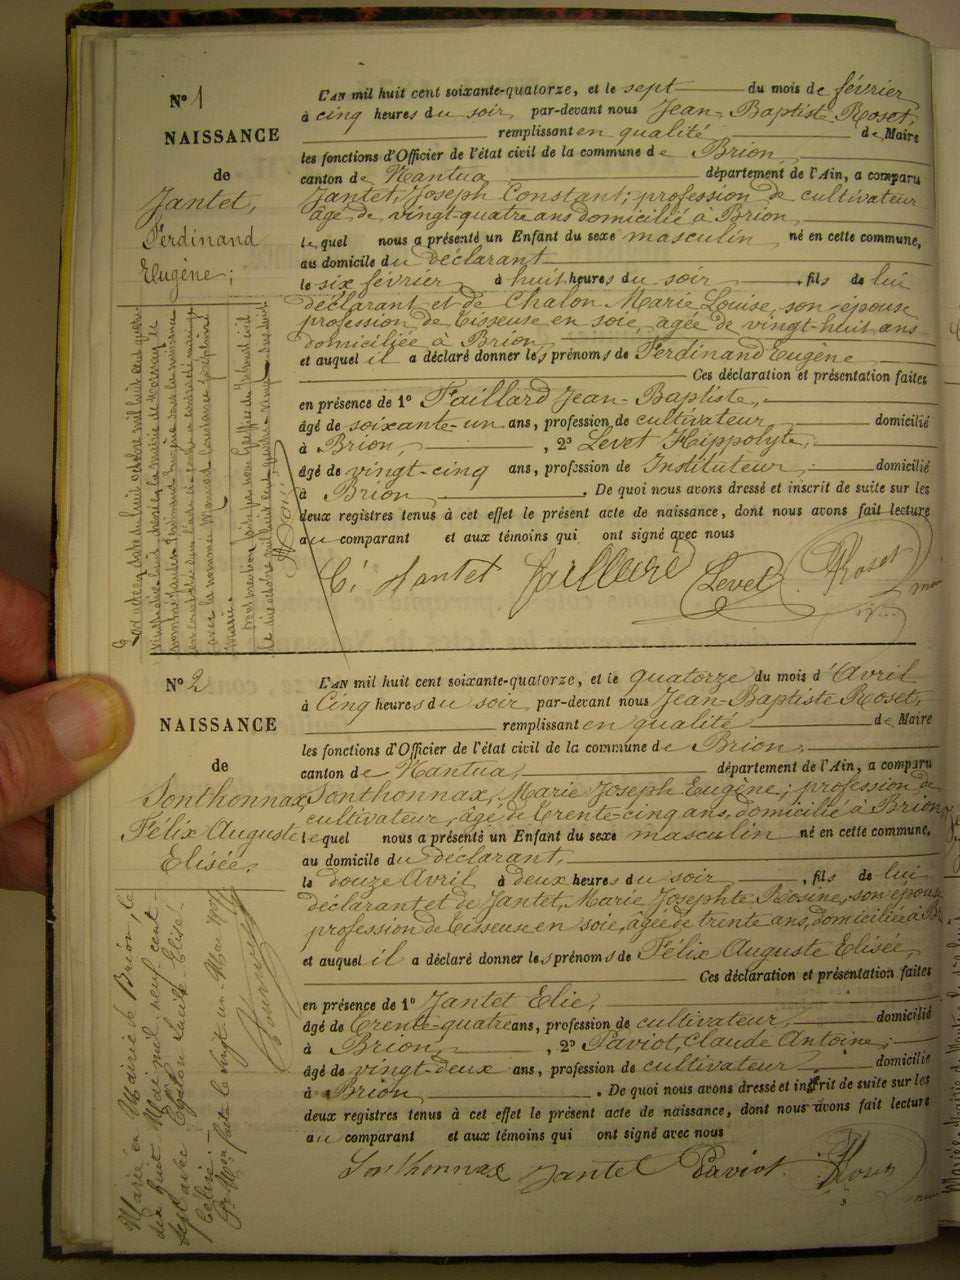 N° 1
NAISSANCE
de
Jantet,
Ferdinand
Eugène;
L'AN mil huit cent soixante-quatorze, et le sept du mois de février
à cinq heures du soir par-devant nous Jean-Baptiste Roset,
remplissant en qualité de Maire
les fonctions d'Officier de l'état civil de la commune de Brion,
canton de Nantua département de l'Ain, a comparu
Jantet, Joseph Constant; profession de cultivateur
âgé de vingt-quatre ans domicilié à Brion,
lequel nous a présenté un Enfant du sexe masculin né en cette commune,
au domicile du déclarant
le six février à huit heures du soir, fils de lui
déclarant et de Chalon Marie Louise son épouse
profession de Tisseuse en soie, âgée de vingt-huit ans
domiciliée à Brion,
et auquel il a déclaré donner les prénoms de Ferdinand Eugène
Ces déclaration et présentation faites
en présence de 1° Faillard Jean-Baptiste,
âgé de soixante-un ans, profession de cultivateur domicilié
à Brion, , 2° Levet Hippolyte,
âgé de vingt-cinq ans, profession de Instituteur, domicilié
à Brion . De quoi nous avons dressé et inscrit de suite sur les
deux registres tenus à cet effet le présent acte de naissance, dont nous avons fait lecture
au comparant et aux témoins qui ont signé avec nous
Jantet Levet Roset
N° 2
NAISSANCE
de
Sonthonnax,
Félix Auguste
Elisée.
L'AN mil huit cent soixante-quatorze, et le quatorze du mois d'Avril
à Cinq heures du soir par-devant nous Jean-Baptiste Roset,
remplissant en qualité de Maire
les fonctions d'Officier de l'état civil de la commune de Brion,
canton de Nantua, département de l'Ain, a comparu
Sonthonnax, Marie Joseph Eugène; profession de
cultivateur, âgé de Trente-cinq ans, domicilié à Brion,
lequel nous a présenté un Enfant du sexe masculin né en cette commune,
au domicile du déclarant,
le douze Avril à deux heures du soir, fils de lui
déclarant et de Jantet, Marie Josephte Rosine, son épouse
profession de Tisseuse en soie, âgée de trente ans, domiciliée à
et auquel il a déclaré donner les prénoms de Félix Auguste Elisée,
Ces déclaration et présentation faites
en présence de 1° Jantet Elie,
âgé de Trente-quatre ans, profession de cultivateur, domicilié
à Brion, , 2° Paviot, Claude Antoine,
âgé de vingt-deux ans, profession de cultivateur domicilié
à Brion . De quoi nous avons dressé et inscrit de suite sur les
deux registres tenus à cet effet le présent acte de naissance, dont nous avons fait lecture
au comparant et aux témoins qui ont signé avec nous
Sonthonnax Jantet Paviot Roset
Marié en Mairie de Brion, le
dix huit Mai mil neuf cent
sept avec